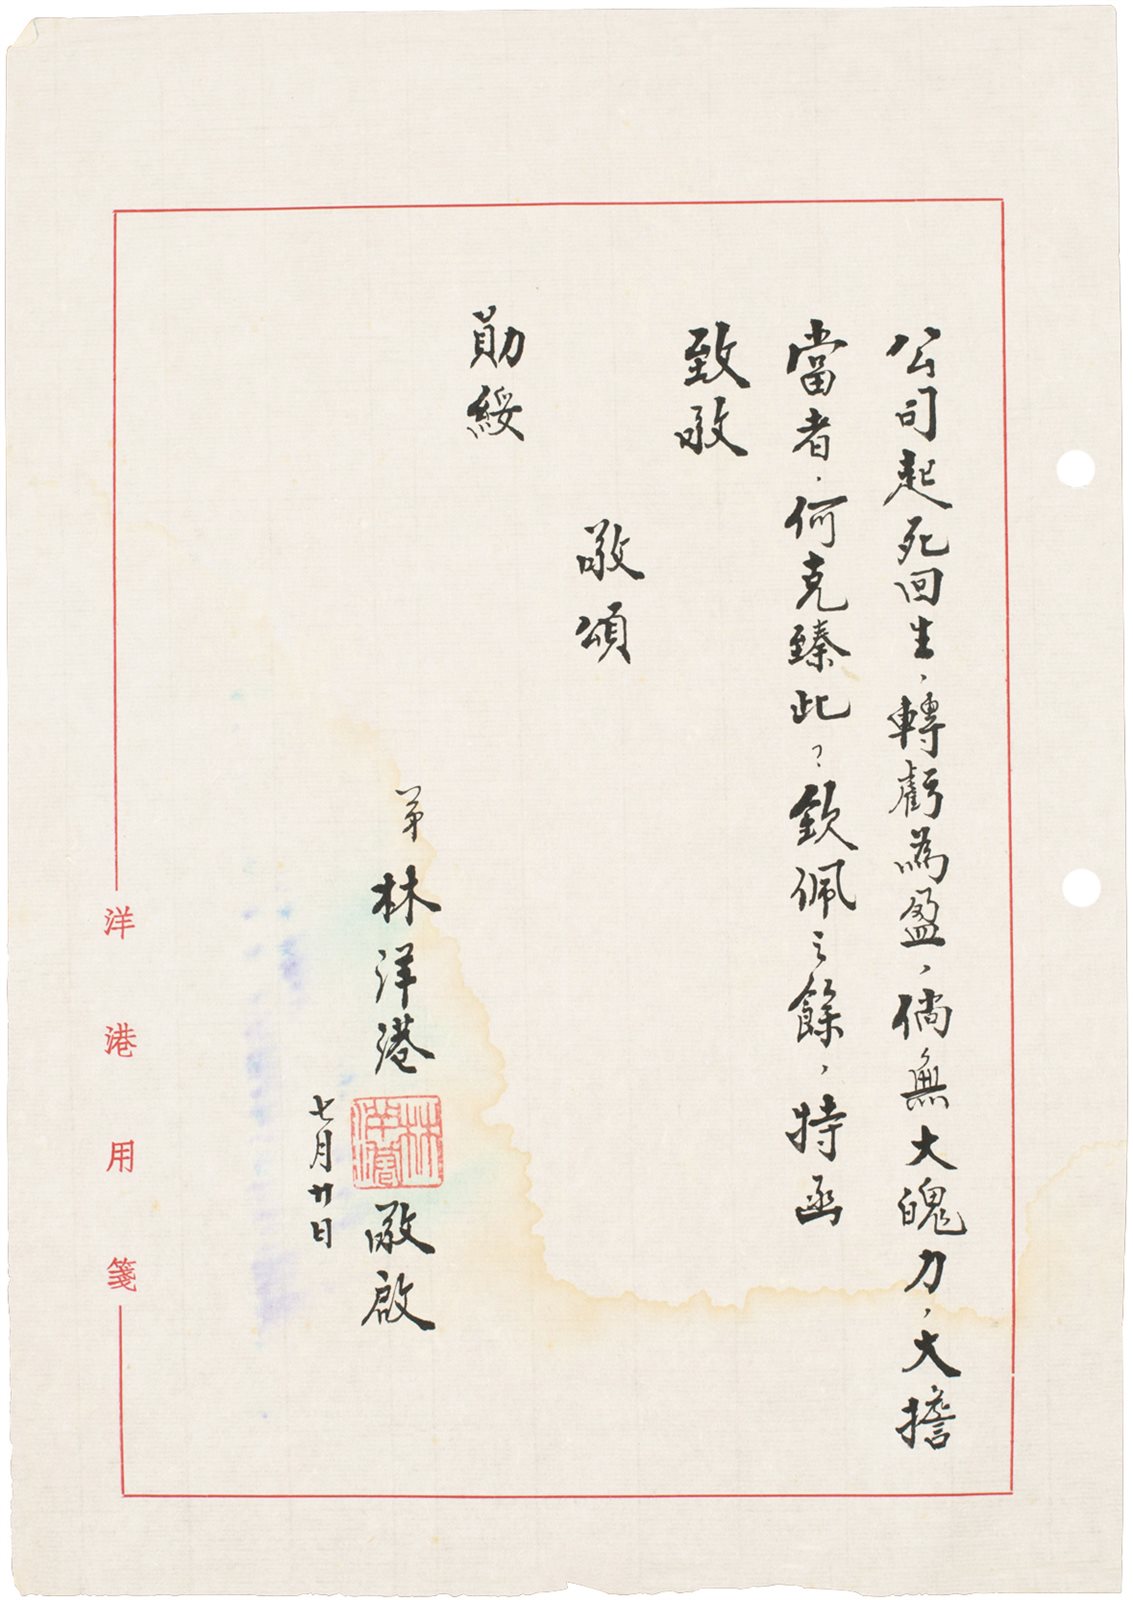 公司起死回生，轉虧為盈，倘無大魄力，大擔
當者，何克臻此？欽佩之餘，特函
致敬
敬頌
勛綏
弟林洋港敬啟
七月廿日
洋港用箋